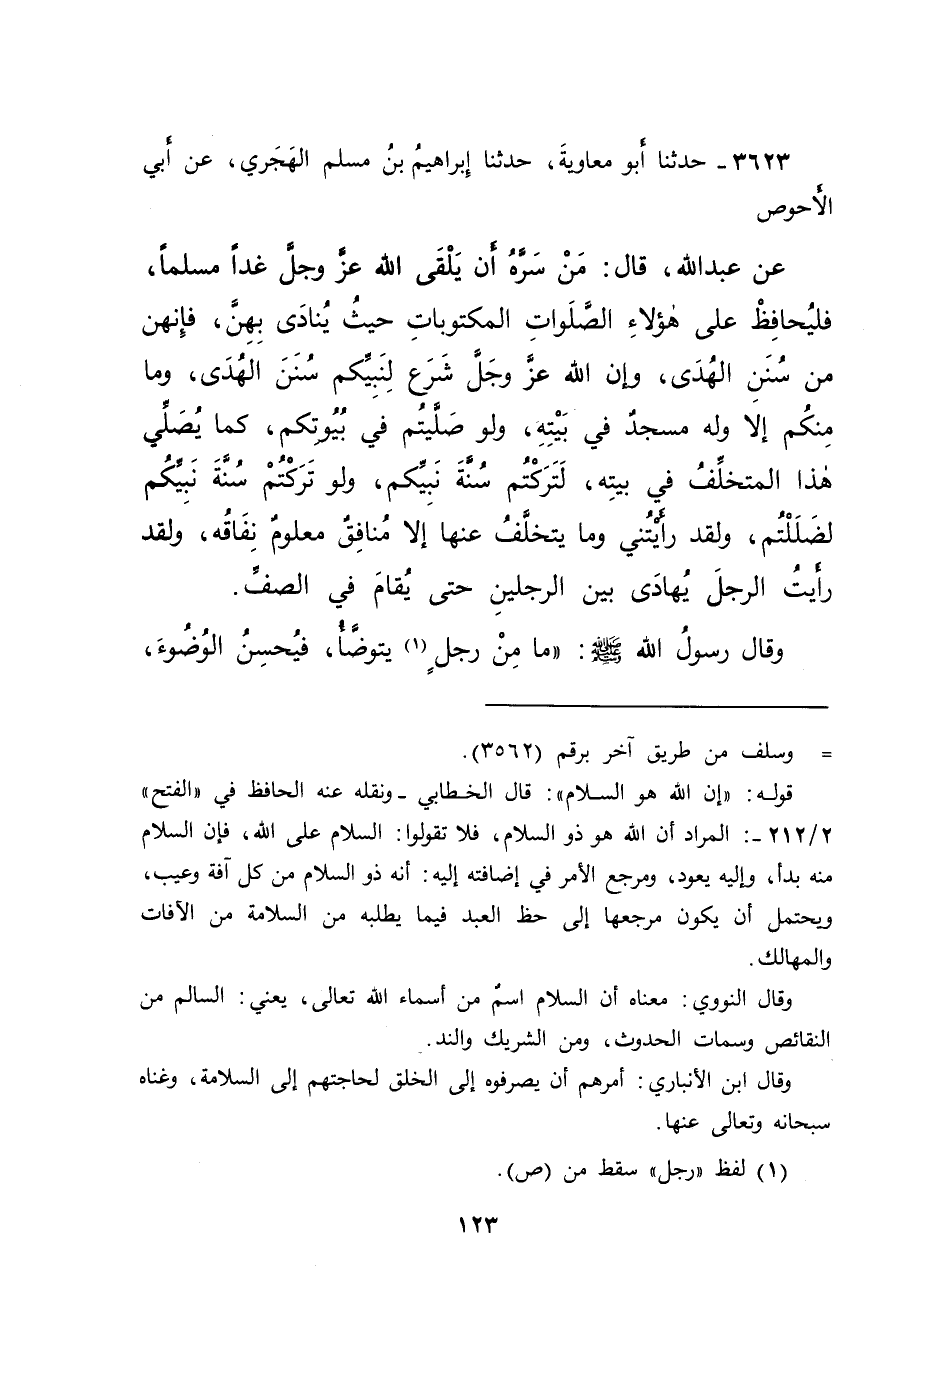 ٣٦٢٣ - حدثنا أَبو معاويةَ، حدثنا إِبراهيمُ بنُ مسلم الهَجَري، عن أَبي
الأَحوص
عن عبدالله، قال: مَنْ سَرَّهُ أَن يَلْقَى الله عزَّ وجلَّ غداً مسلماً،
فليُحافِظْ على هٰؤلاءِ الصَّلَواتِ المكتوباتِ حيثُ يُنادَى بِهِنَّ، فإِنهن
من سُنَنِ الهُدَى، وإن الله عزَّ وجَلَّ شَرَع لِنَبِيِّكم سُنَنَ الهُدَى، وما
مِنكُم إلا وله مسجدٌ في بَيْتِهِ، ولو صَلَّيتُم في بُيُوتِكم، كما يُصَلِّي
هٰذا المتخلِّفُ في بيتِه، لَتَركْتُم سُنَّةَ نَبِيِّكم، ولو تَرَكْتُمْ سُنَّةَ نَبِيِّكُم
لضَلَلْتُم، ولقد رأَيْتُني وما يتخلَّفُ عنها إلا مُنافِقٌ معلومٌ نِفَاقُه، ولقد
رأَيتُ الرجلَ يُهادَى بين الرجلينِ حتى يُقامَ في الصفِّ.
وقال رسولُ الله ﷺ: «ما مِنْ رجلٍ (١) يتوضَّأُ، فيُحسِنُ الوُضُوءَ،
= وسلف من طريق آخر برقم (٣٥٦٢).
قوله: «إن الله هو السلام»: قال الخطابي - ونقله عنه الحافظ في «الفتح»
٢١٢/٢ -: المراد أن الله هو ذو السلام، فلا تقولوا: السلام على الله، فإن السلام
منه بدأ، وإليه يعود، ومرجع الأمر في إضافته إليه: أنه ذو السلام من كل آفة وعيب،
ويحتمل أن يكون مرجعها إلى حظ العبد فيما يطلبه من السلامة من الآفات
والمهالك.
وقال النووي: معناه أن السلام اسمٌ من أسماء الله تعالى، يعني: السالم من
النقائص وسمات الحدوث، ومن الشريك والند.
وقال ابن الأنباري: أمرهم أن يصرفوه إلى الخلق لحاجتهم إلى السلامة، وغناه
سبحانه وتعالى عنها.
(١) لفظ «رجل» سقط من (ص).
١٢٣